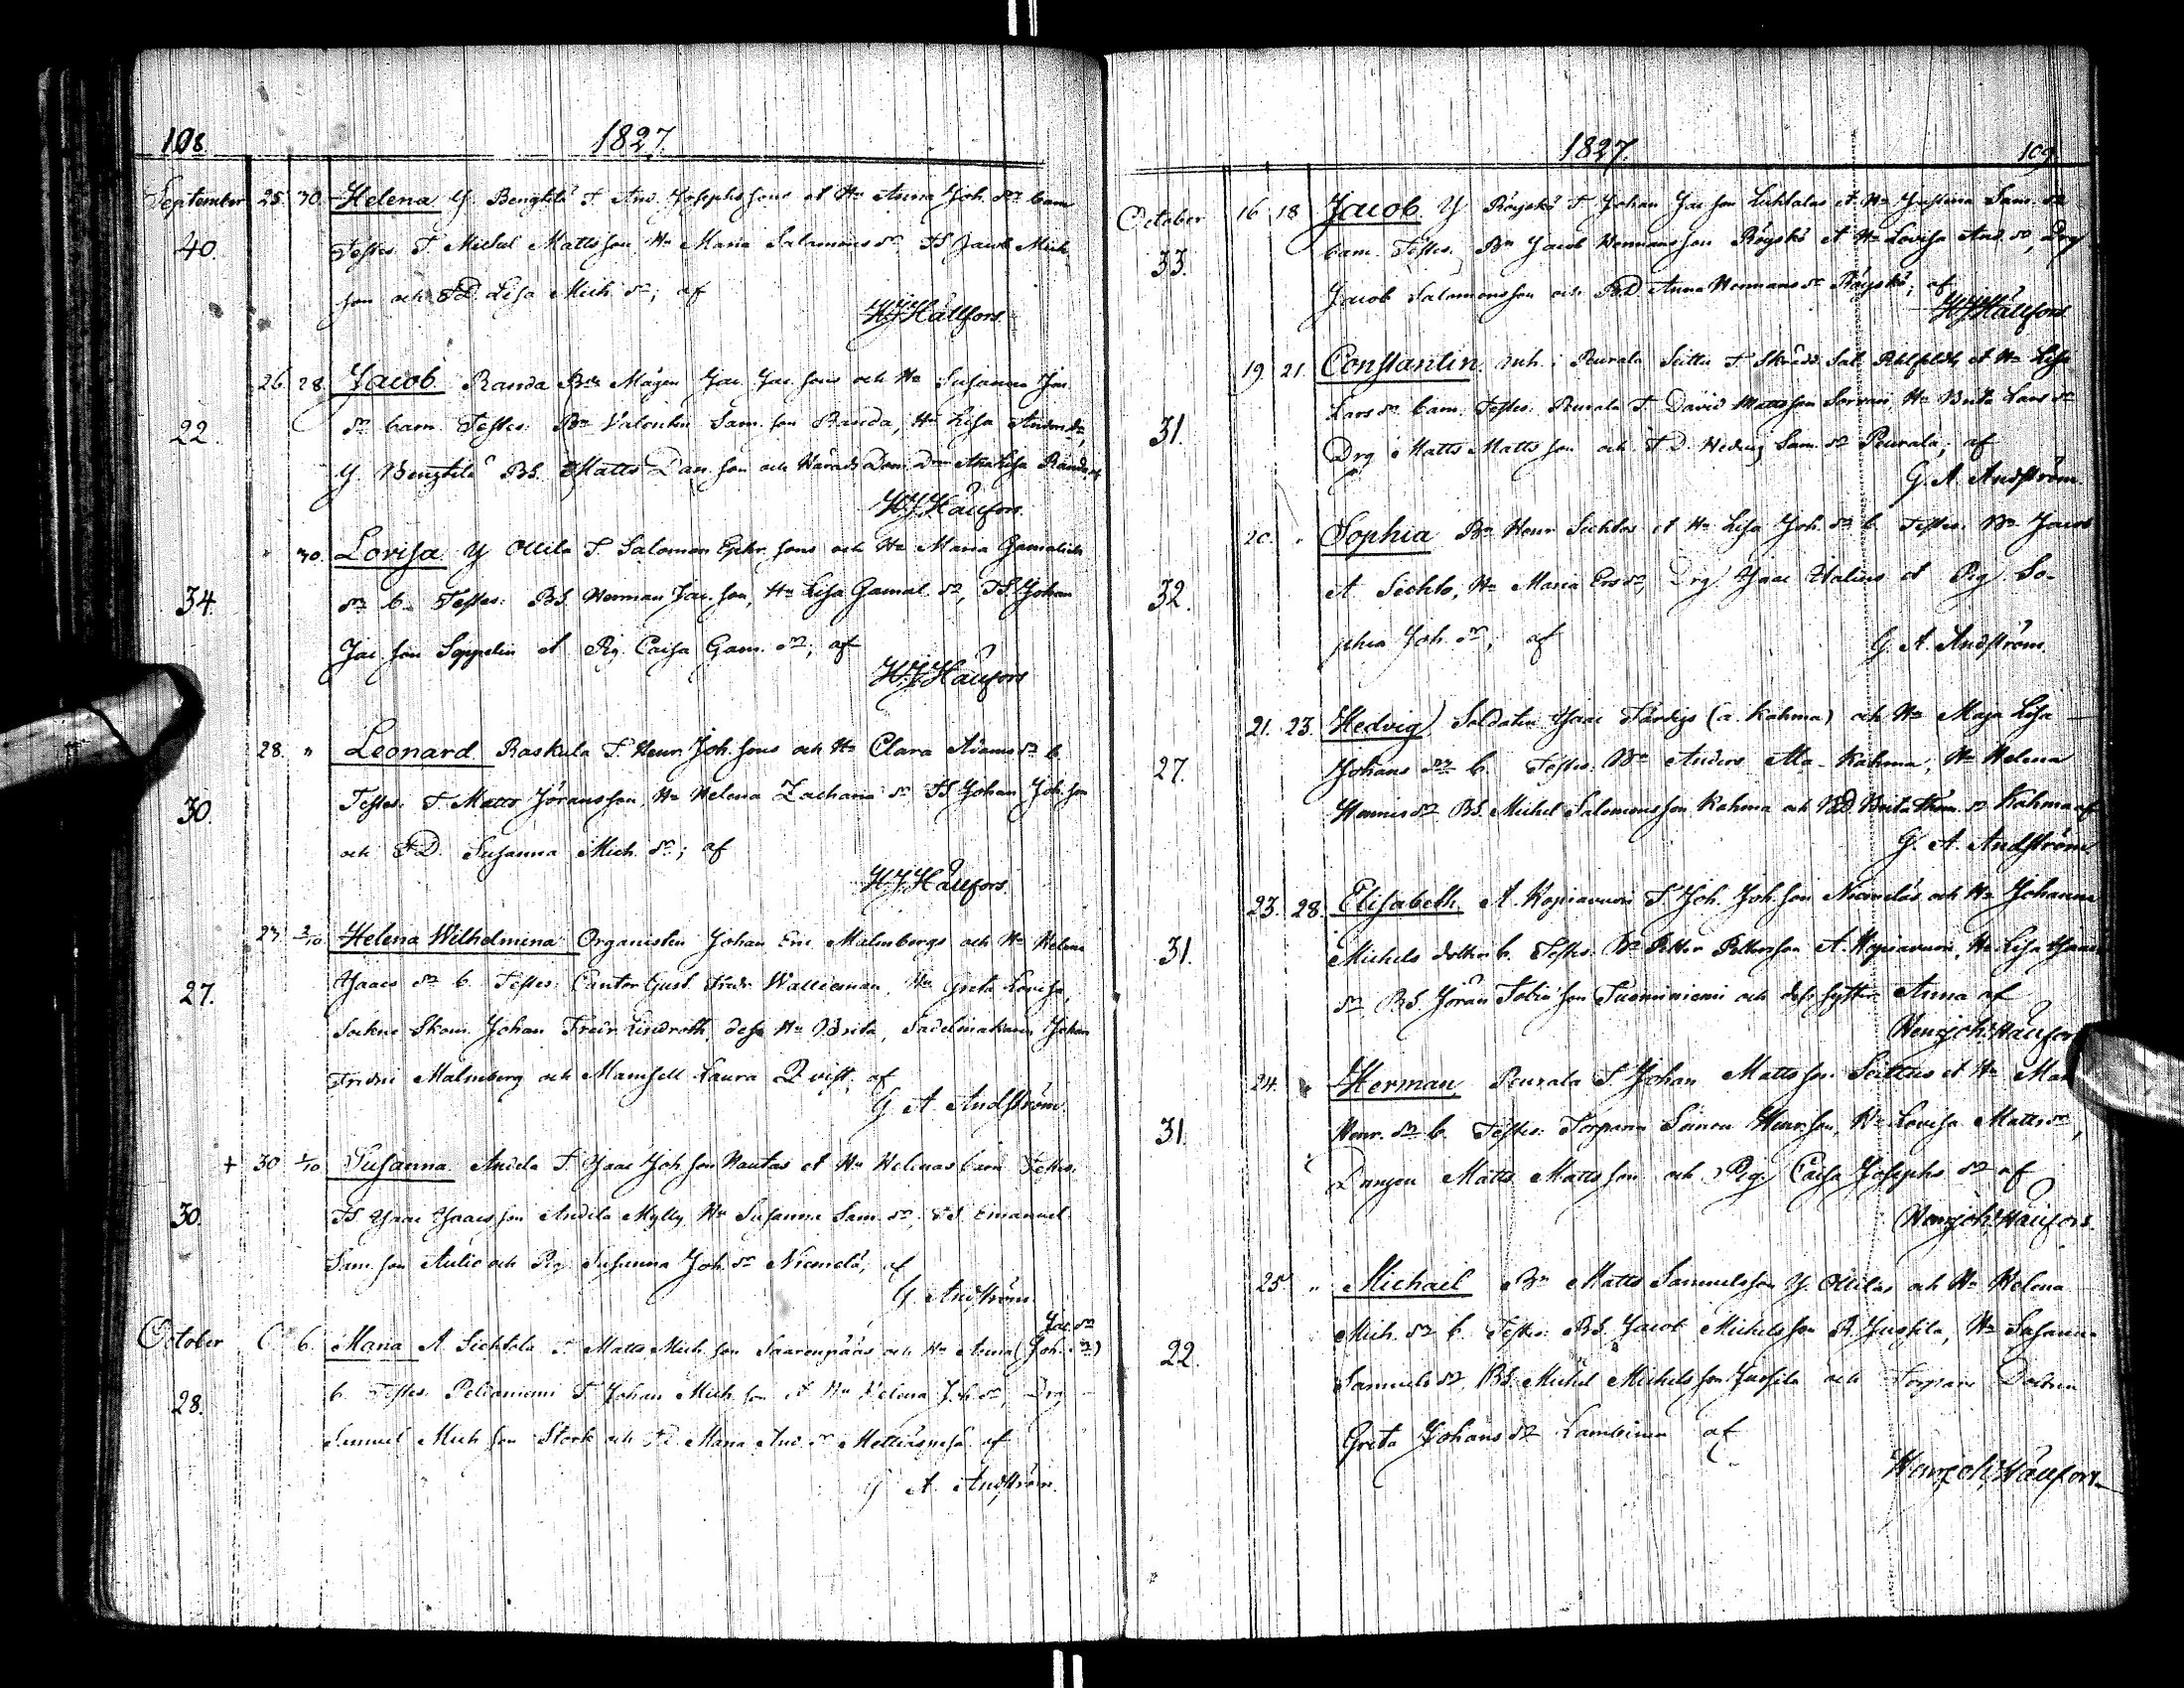 108. 1827.
September 25. 30. Helena Y. Bengtilä T. And. Josephssons et Hu Anna Joh. dr barn
40. Testes. T. Michel Mattsson, Hu Maria Salomons dr, TS Jacob Mich.
son och TD. Lisa Mich. dr; af
H.J. Hällfors.
26. 28. Jacob. Randa Bds Mågen Jac. Jac. sons och Hu Susanna
22. dr barn. Testes. Bn Valentin Sam. son Randa, Hu Lisa
Y. Bengtilä BS. Matts Dan. son och
H.J. Hällfors.
" 30. Lovisa Y Ollila T. Salomon Ephr. sons och Hu Maria Gamaliels
34. dr b. Testes: BS. Herman Jac. son, Hu Lisa Gamal. dr, TS. Johan
Jac. son Seppelin et Pig. Caisa Gam. dr; af
H.J. Hällfors
28. " Leonard Raskula T. Henr. Joh. sons och Hu Clara Adams dr b.
30. Testes. T. Matts Jöransson, Hu Helena Zacharie dr TS Johan Joh. son
och TD. Susanna Mich. dr; af
H.J. Hällfors.
27. 3/10 Helena Wilhelmina Organisten Johan Eric Malmbergs och Hu Helena
27. Isaacs dr b. Testes. Cantor Gust. Fredr. Wallieman, Hu Greta Lovisa,
Sockne Skom. Johan Fredr Lindroth, dess Hu Brita, Sadelmakaren Johan
Malmberg och Mamsell Laura Qvist; af
G. A. Andström.
+ 30 1/10 Susanna. Andela T. Isaac Joh. son Nautas et Hu Helenas barn Testes.
30. TS Isaac Isaacs son Andela Mylly, Hu Susanna Sam. dr, TS Emanuel
Sam. son Aulio och Pig. Susanna Joh. dr Niemelä; af
G. Andström.
Jac. dr
October 6. Maria A. Sichtola T. Matts Mich. son Saarenpääs och Hu Anna (Joh. dr)
28. b. Testes. Peltoniemi T. Johan Mich. son et Hu Helena Joh. dr, Drg
Samuel Mich. son Stork och TD. Maria And. dr af
G. A. Andström.
1827. 109
October 16. 18 Jacob. Y Röyskö T. Johan Jac. son et Hu Justina Sam. dr
33. barn. Testes. Bn Jacob Hermansson Röyskö et Hu Lovisa And. dr, Drg
Jacob Salomonsson och BD Anna Hermans dr Röyskö; af
H.J. Hällfors
19. 21. Constantin. inh. i Peurala T. Skrädd. Sal. et Hu Lisa
31. Lars dr barn. Testes. Peurala T. David Mattsson Hu Brita Lars dr
Drg Matts Mattsson och TD. Hedvig Sam. dr Peurala; af
G. A. Andström.
20. " Sophia Bn Henr. Sichlos et Hu Lisa Joh. dr b. Testes. Bn Jacob
32. A. Sichlo, Hu Maria Ers dr, Drg Isaac Italius et Pig. So-
phia Joh. dr; af
G. A. Andström.
21. 23. Hedvig Soldaten Isaac Färdigs (a. Kahma) och Hu Maja Lisa
27. Johans dr b. Testes: Bn Anders Ala-Kahma, Hu Helena
dr BS. Michel Salomonsson Kahma och BD. Brita Thom. dr Kahma af
G. A. Andström.
23. 28. Elisabeth A. Kopiavuori T. Joh. Joh. son Niemeläs och Hu Johanna
31. Michels dotters b. Testes. Bn Petter Pettersson A. Kopiavuori, Hu Lisa Isaacs
dr BS. Jöran Tobias son Tuominiemi och dess syster Anna af
Henr. Joh. Hällfors
24. " Herman, Peurala T. Johan Mattsson et Hu Mar
31. Henr. dr b. Testes: Torparen Simon Henr. son, Hu Lovisa Matts dr,
Drengen Matts Mattsson och Pig. Caisa Josephs dr af
Henr. Joh. Hällfors.
25. " Michael Bn Matts Samuelsson Y. Ollilas och Hu Helena
22. Mich. dr b. Testes: BS. Jacob Michelsson A. Jussila, Hu Susanna
Samuels dr, BS. Michel Michelsson Jussila och Torpare Dottren
Greta Johans dr Lambinen af
Henr. Joh. Hällfors